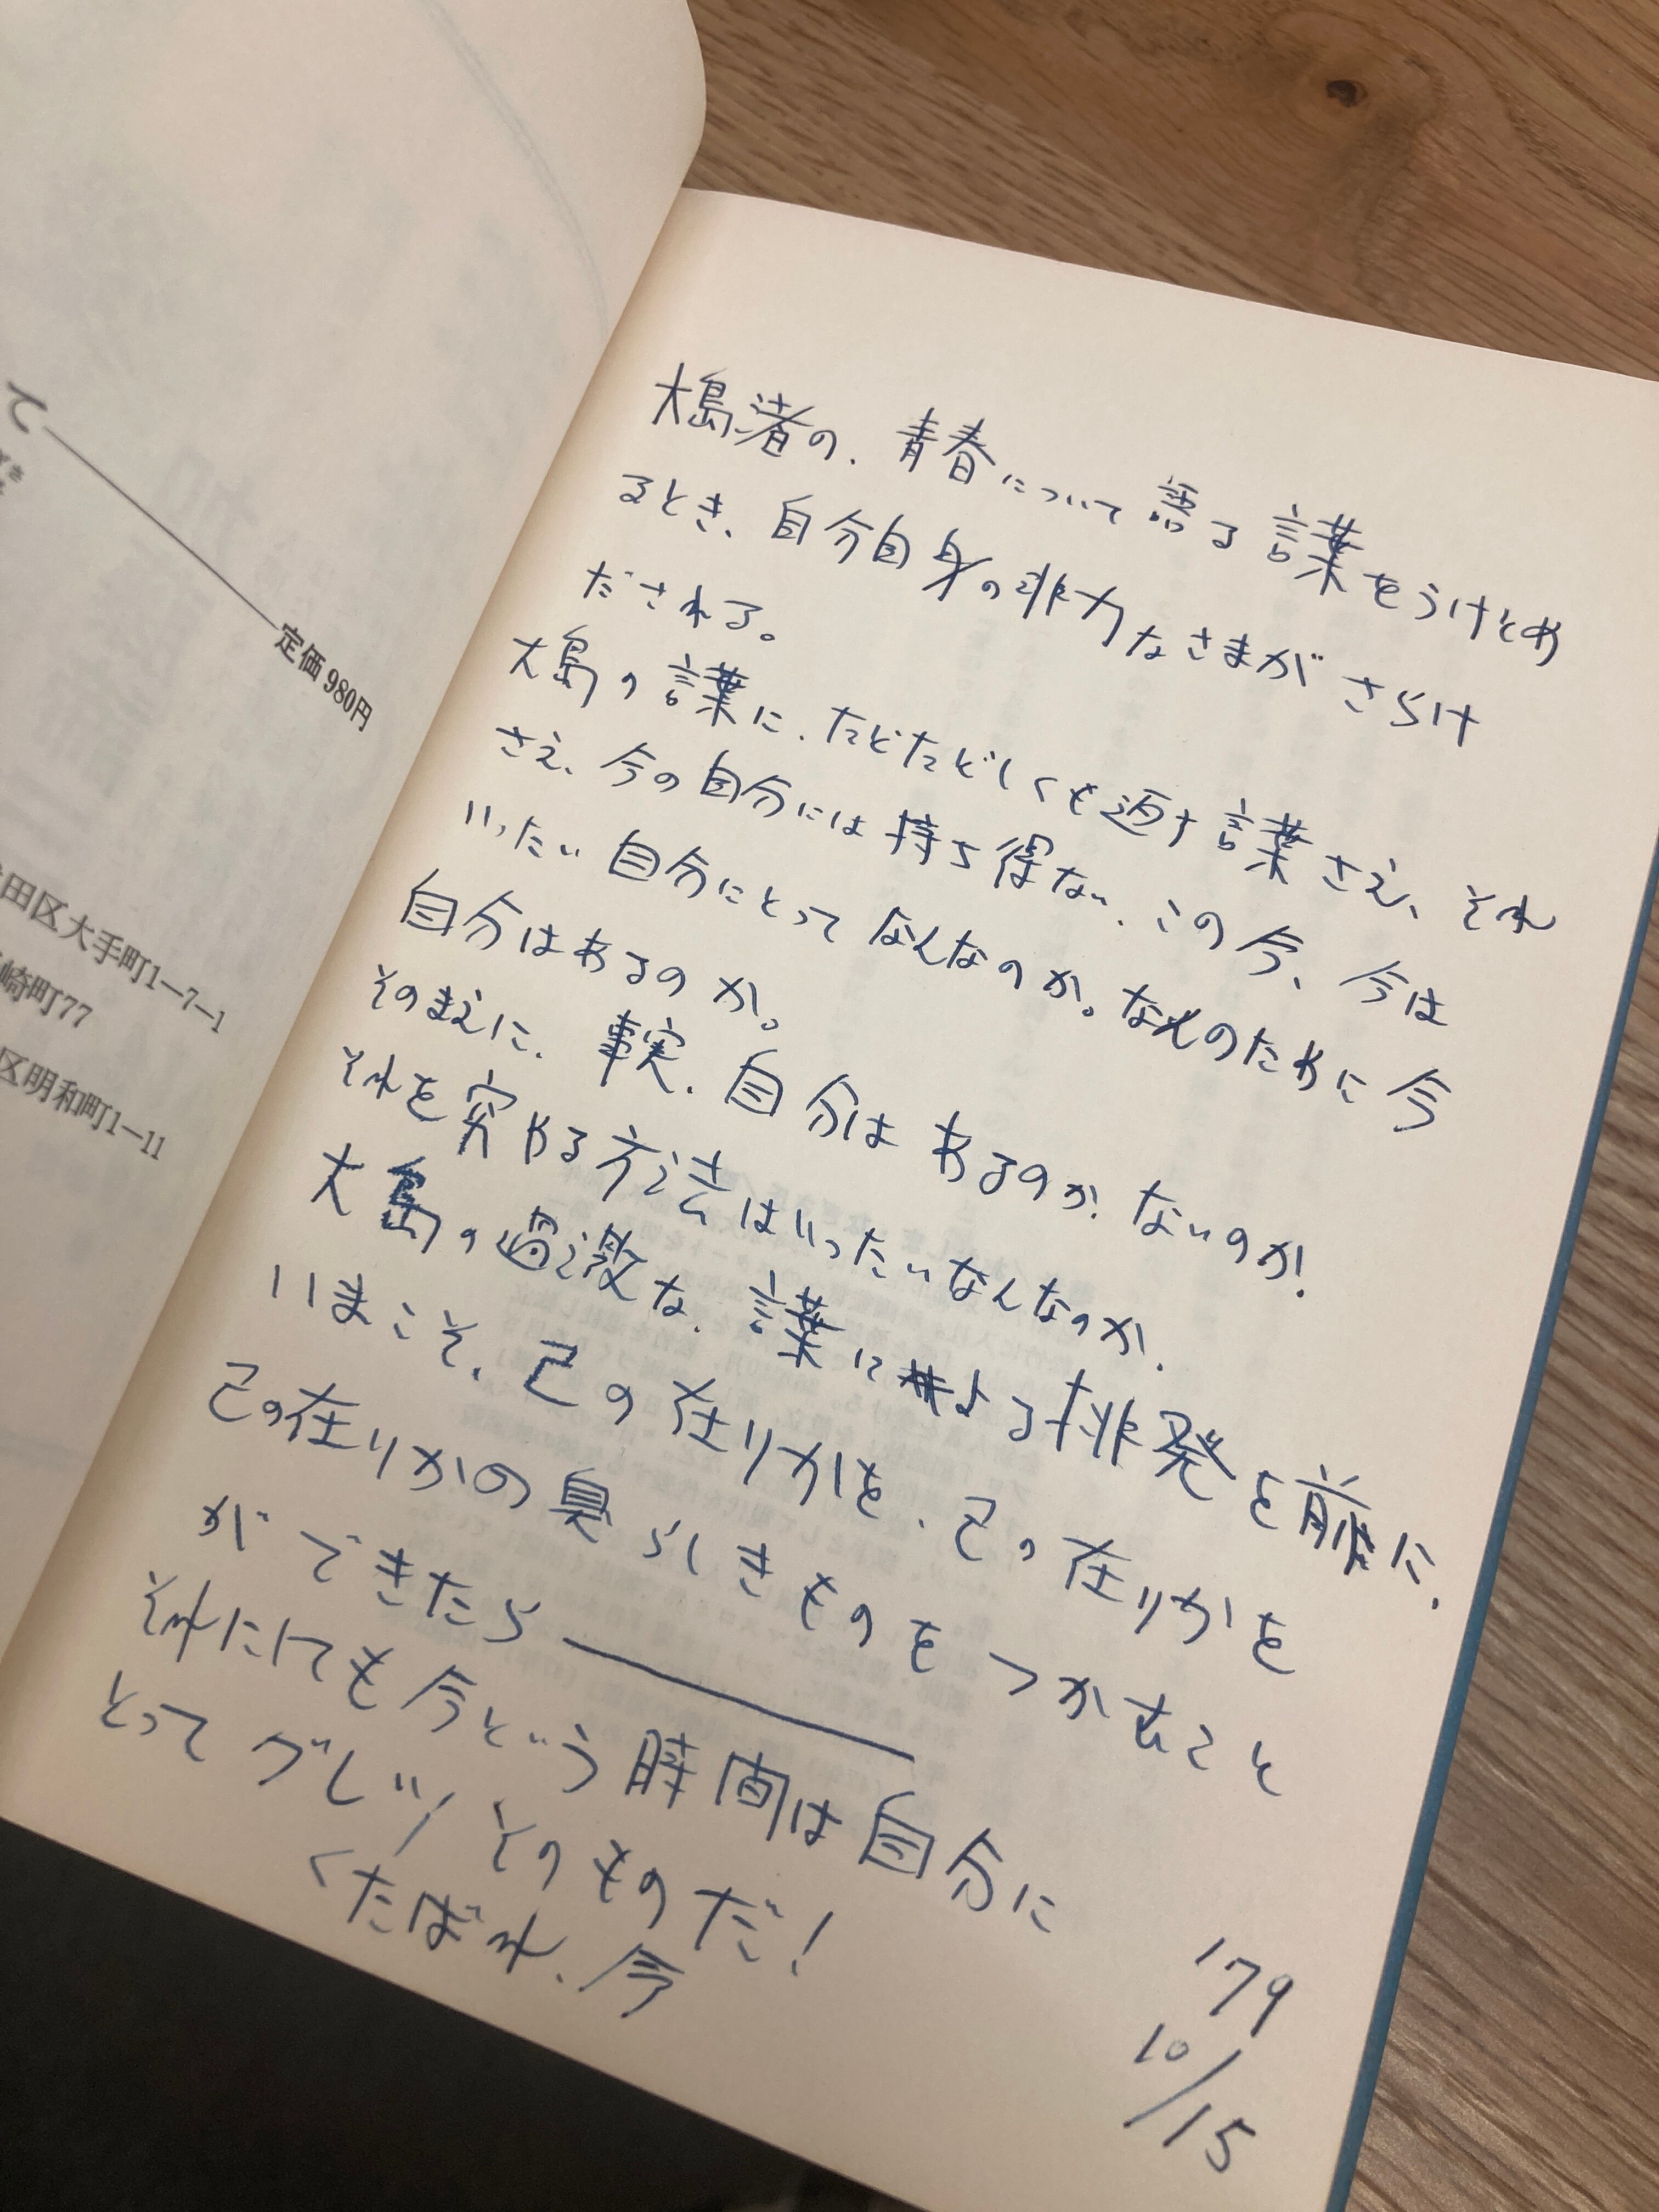 て
定価 980円
田区大手町1-7-1
崎町77
区明和町1-11
大島渚の、青春について語る言葉をうけとめ
るとき、自分自身の非力なさまがさらけ
だされる。
大島の言葉に、たどたどしくも返す言葉さえ、それ
さえ、今の自分には持ち得ない、この今、今は
いったい自分にとってなんなのか。なんのために今
自分はあるのか。
そのまえに、事実、自分はあるのか ないのか!
それを究める方法はいったいなんなのか、
大島の過激な、言葉による挑発を前に、
いまこそ、己の在りかを、己の在りかを
己の在りかの臭らしきものをつかむこと
ができたら――
それにしても今という時間は自分に
とって グレツ そのものだ!
くたばれ、今
'79
10/15